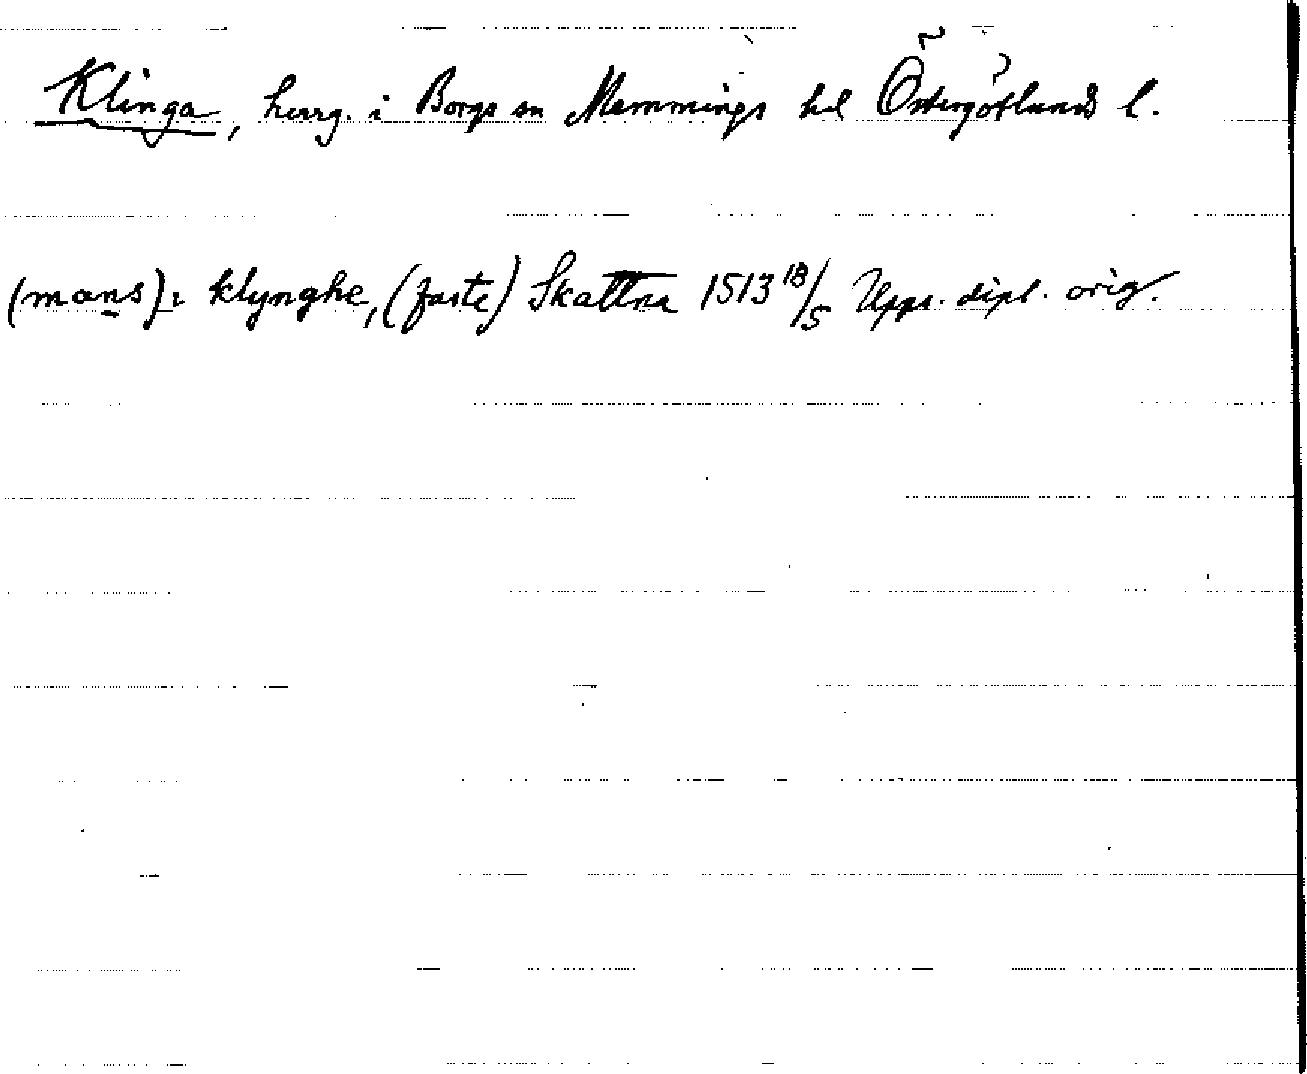 Klinga, herrg. i Borgs sn Memmings hd Östergötlands l.
(mans): klynghe, (faste) Skattna 1513 18/5 Upps. dipl. orig.